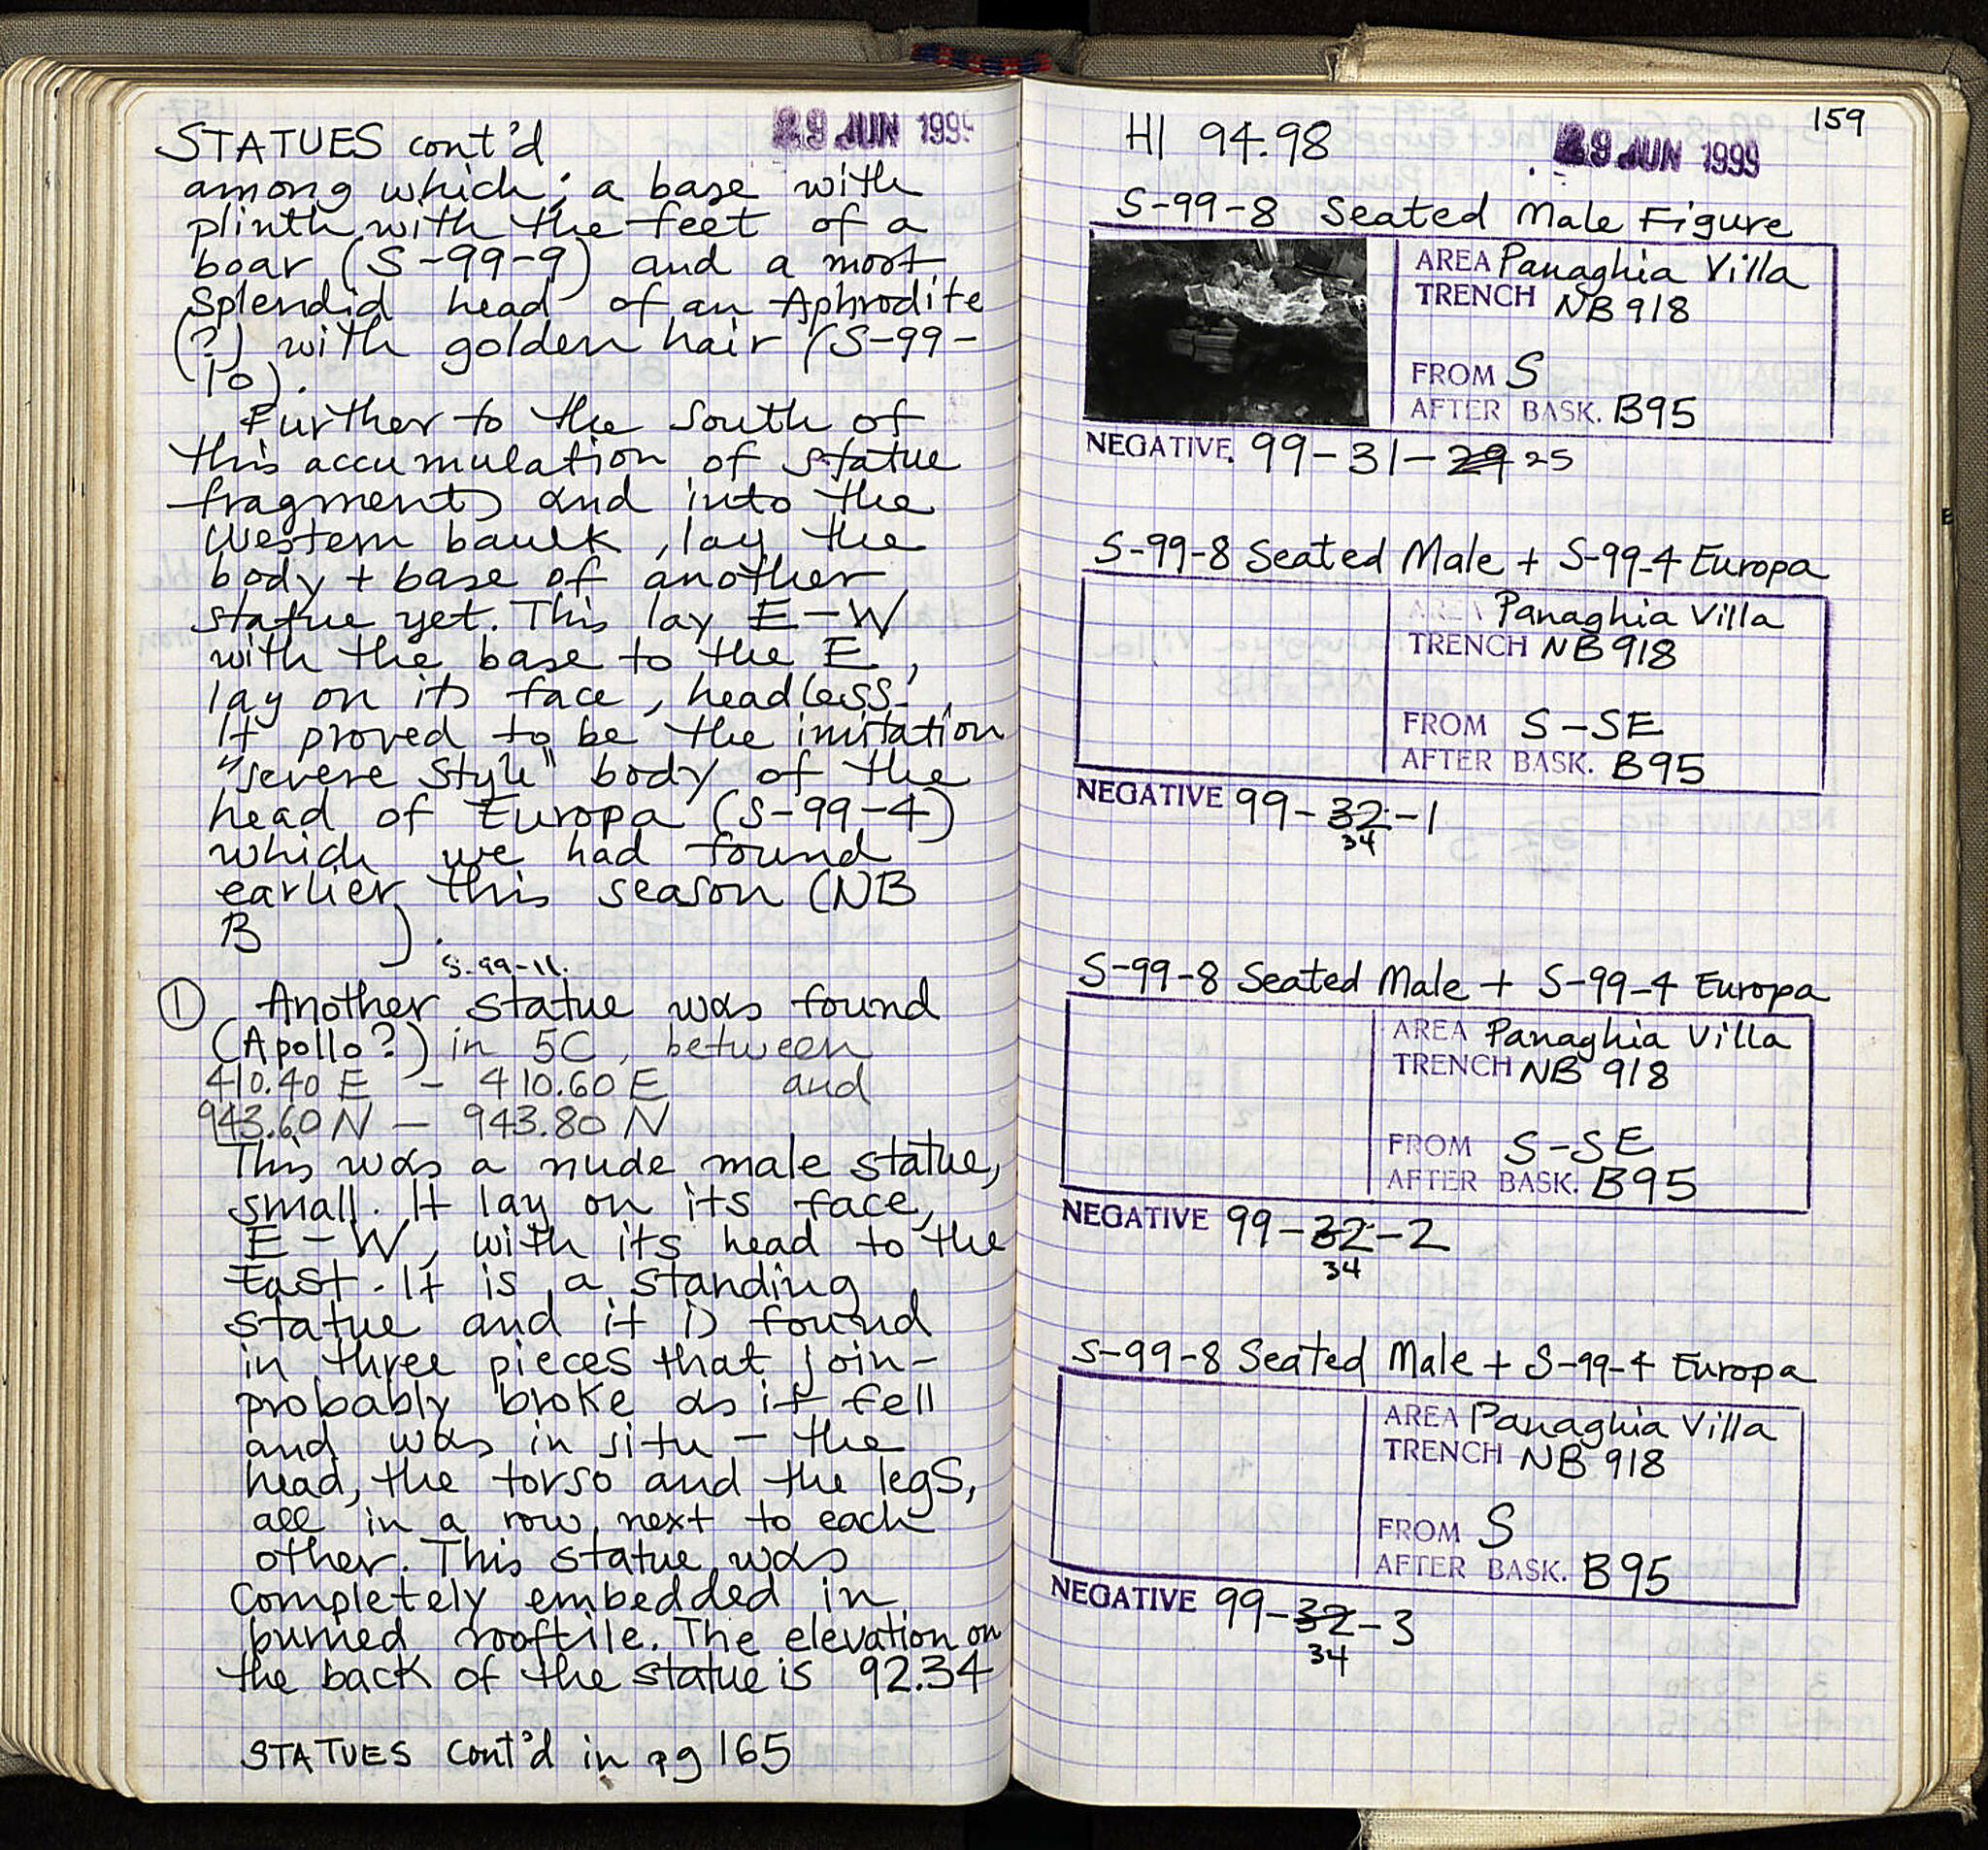 29 JUN 199
STATUES cont'd
among which; a base with
plinth with the feet of a
boar (S-99-9) and a most
splendid head of an Aphrodite
(?) with golden hair (S-99-
10).
Further to the South of
this accumulation of statue
fragments and into the
Western baulk, lay the
body + base of another
statue yet. This lay E-W
with the base to the E,
lay on its face, headless.
It proved to be the imitation
"severe style" body of the
head of Europa (S-99-4)
which we had found
earlier this season (NB
B ).
S-99-11.
① Another statue was found
(Apollo?) in 5C, between
410.40 E - 410.60 E and
943.60 N - 943.80 N
This was a nude male statue,
small. It lay on its face,
E-W, with its head to the
East. It is a standing
statue and it is found
in three pieces that join-
probably broke as it fell
and was in situ - the
head, the torso and the legs,
all in a row, next to each
other. This statue was
completely embedded in
burned rooftile. The elevation on
the back of the statue is 92.34
STATUES cont'd in pg 165
159
HI 94.98
29 JUN 1999
S-99-8 Seated Male Figure
AREA Panaghia Villa
TRENCH NB 918
FROM S
AFTER BASK. B95
NEGATIVE 99-31-29 25
S-99-8 Seated Male + S-99-4 Europa
AREA Panaghia Villa
TRENCH NB 918
FROM S-SE
AFTER BASK. B95
NEGATIVE 99-32-1
34
S-99-8 Seated Male + S-99-4 Europa
AREA Panaghia Villa
TRENCH NB 918
FROM S-SE
AFTER BASK. B95
NEGATIVE 99-32-2
34
S-99-8 Seated Male + S-99-4 Europa
AREA Panaghia Villa
TRENCH NB 918
FROM S
AFTER BASK. B95
NEGATIVE 99-32-3
34